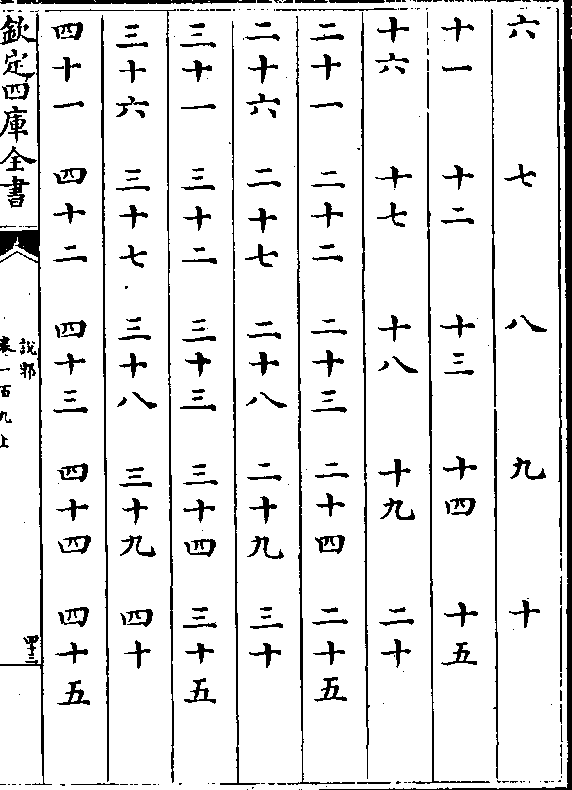 六 七 八 九 十
十一 十二 十三 十四 十五
十六 十七 十八 十九 二十
二十一 二十二 二十三 二十四 二十五
二十六 二十七 二十八 二十九 三十
三十一 三十二 三十三 三十四 三十五
三十六 三十七 三十八 三十九 四十
四十一 四十二 四十三 四十四 四十五
欽定四庫全書
說郛
卷一百九上
四十三